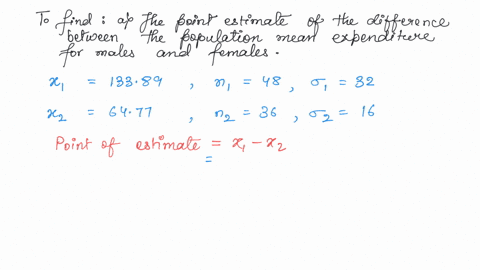 To find : a) The point estimate of the difference
between the population mean expenditure
for males and females.
x₁ = 133.89 , n₁ = 48 , σ₁ = 32
x₂ = 64.77 , n₂ = 36 , σ₂ = 16
Point of estimate = x₁ - x₂
=